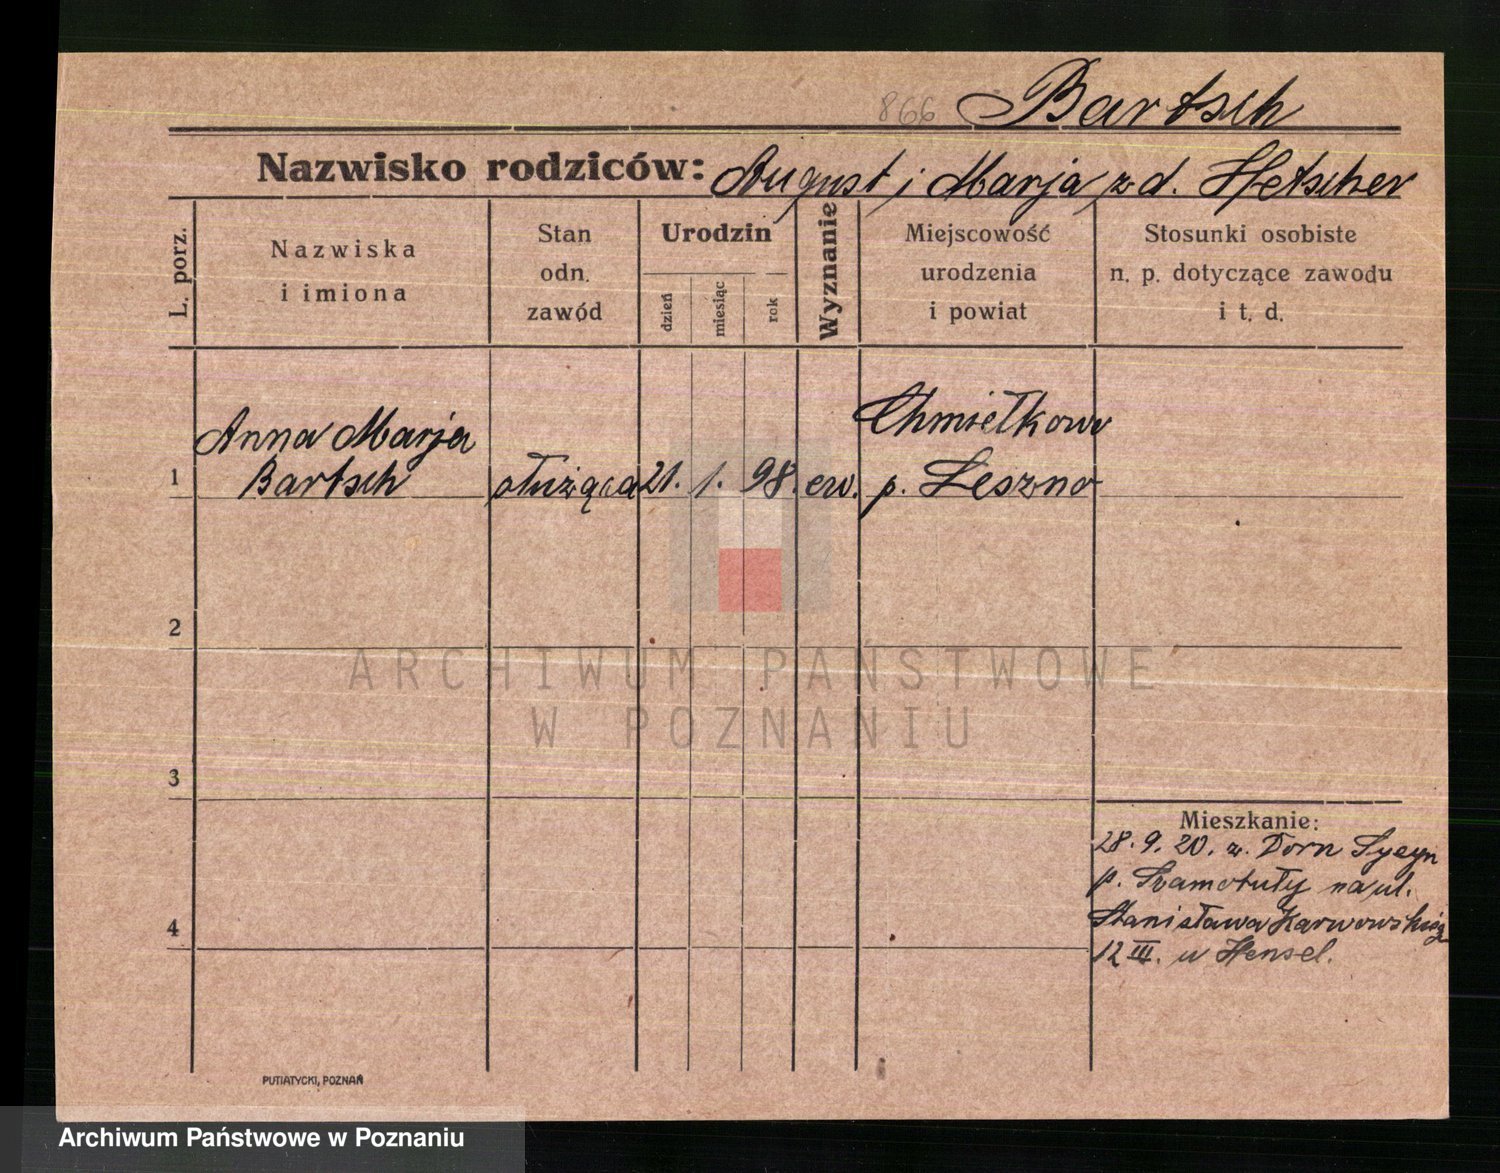 866 Bartsch
Nazwisko rodziców: August i Marja z d. Hetscher
L. porz.
Nazwiska
i imiona
Stan
odn.
zawód
Urodzin
dzień
miesiąc
rok
Wyznanie
Miejscowość
urodzenia
i powiat
Stosunki osobiste
n. p. dotyczące zawodu
i t. d.
Anna Marja
Chmiełkowo
1 Bartsch służąca 21. 1. 98. ew. p. Leszno
2
ARCHIWUM PAŃSTWOWE
W POZNANIU
3
Mieszkanie:
28. 9. 20. z. Dorn
p. Szamotuły na ul.
Stanisława Karwowskiego
4
12 III. u Hensel.
PUTIATYCKI, POZNAŃ
Archiwum Państwowe w Poznaniu